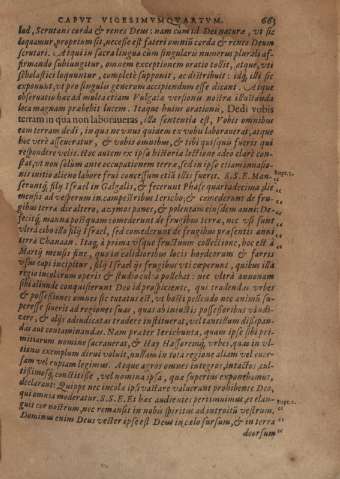 CAPUT VIGESIMUMQUARTUM. 663
Iud, Scrutans corda & renes Deus: nam cum id Dei naturæ, vt sic
loquamur, proprium sit, necesse est fateri omnium corda & renes Deum
scrutari. Atque in sacra lingua cùm singularis numerus plurali af-
firmando subiungitur, omnem exceptionem oratio tollit, atque, vti
scholastici loquuntur, completè supponit, ac distribuit: idq́; illi sic
exponunt, vt pro singulis generum accipiendum esse dicant. Atque
observatio hæc ad multa etiam Vulgatæ versionis nostræ illustranda
loca magnam præbebit lucem. Itaque huius orationis, Dedi vobis
terram in qua non laboraueras, illa sententia est, Vobis omnibus
eam terram dedi, in qua ne vnus quidem ex vobis laborauerat, atque
hoc verè asseueratur, & vobis omnibus, & tibi quisquis fueris qui
respondere velis. Hoc autem ex ipsa historica lectione adeo clarè con-
stat, vt non solum ante occupationem terræ, sed in ipsa etiam
nis initio alieno labore frui concessum etiā illis fuerit. S.S.E. Man-
seruntq́; filij Israel in Galgalis, & fecerunt Phase quartadecima die
mensis ad vesperum in campestribus Iericho; & comederunt de fru-
gibus terræ die altero, azymos panes, & polentam eiusdem anni: De-
fecitq́; manna postquam comederunt de frugibus terræ, nec vsi sunt
vltrà cibo illo filij Israel, sed comederunt de frugibus præsentis anni
terræ Chanaan. Itaq́; à prima vsque fructuum collectione, hoc est à
Martij mensis fine, quo in calidioribus locis hordeorum & farris
vsus cupi incipitur, filij Israel ijs frugibus vti cœperunt, quibus illa
regio incolarum operis & studio culta pollebat: nec vltrà annonam
sibi aliunde conquisierunt Deo id prospiciente, qui tradendas vrbes
& possessiones omnes sic tutatus est, vt hosti pellendo nec animū su-
peresse siuerit ad regiones suas, quas ab iniustis possessoribus vindi-
care, & alijs adiudicatas tradere instituerat, vel tantillum dissipan-
das aut contaminandas. Nam præter Ierichunta, quam ipse sibi pri-
mitiarum nomine sacrauerat, & Hay Hassoremq́; vrbes, quas in vl-
tionis exemplum dirui voluit, nullam in tota regione aliam vel euer-
sam vel rapiam legimus. Atque agros omnes integros, intactos, cul-
tissimosq́; concessisse, vel nomina ipsa, quæ superius exponebamus,
declarant: Quippe nec incolæ ipsi vastare valuerunt prohibente Deo,
qui omnia moderatur. S.S.E. Et hæc audiente: pertimuimus, et elan-
guit cor nostrum, nec remansit in nobis spiritus ad introitū vestrum,
Dominus enim Deus vester ipse est Deus in cœlo sursum, & in terra
deorsum